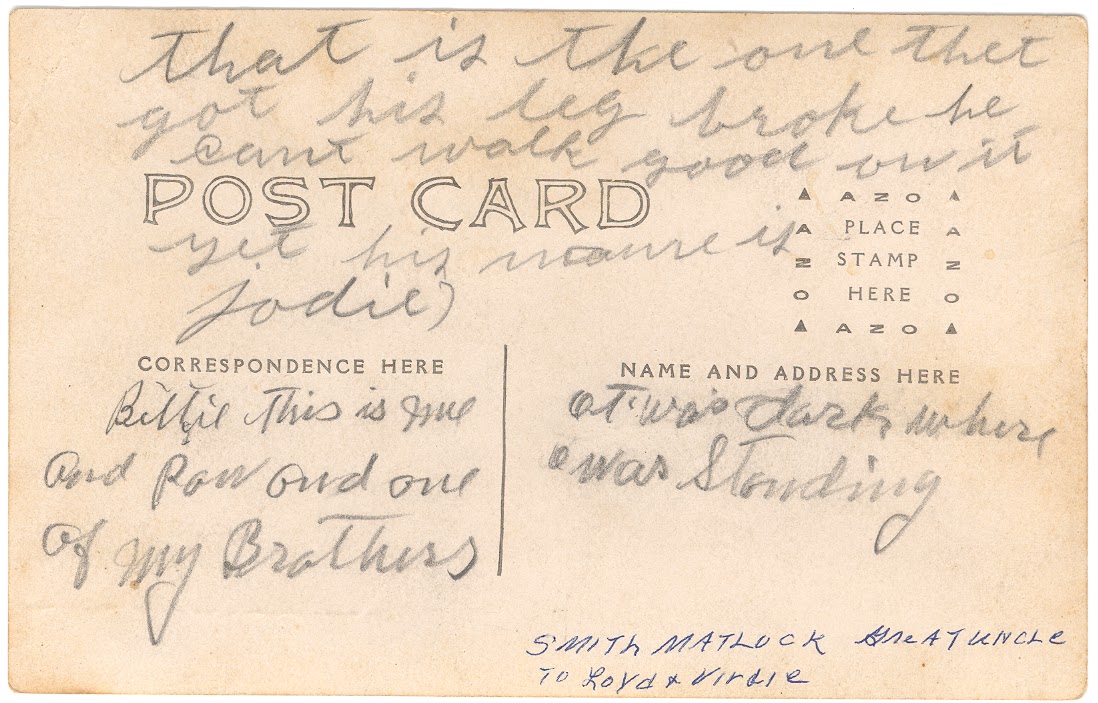 that is the one thet
got his leg broke he
cant walk good on it
POST CARD
yet his name is
jodie)
AZO
PLACE
STAMP
HERE
AZO
AZO
AZO
CORRESPONDENCE HERE
this is me
and Paw and one
of my Brothers
NAME AND ADDRESS HERE
was dark where
was Standing
SMITH MATLOCK GREAT UNCLE
To Loyd & Virdie